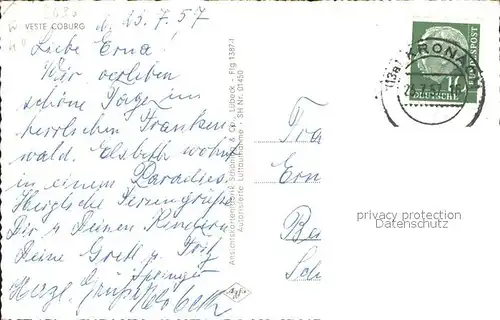 VESTE COBURG
d. 25.7.57
Liebe Erna!
Wir verleben
schöne Tage im
herrlichen Franken-
wald. Elsbeth wohnt
in einem Paradies.
Herzliche Feriengrüße
Dir u. Deinen Kindern
Deine Gretl u. Fritz
Springer
Herzl. Grüße Elsbeth
Ansichtskartenfabrik Schöning & Co., Lübeck. - Flg 1387-I
Autorisierte Luftaufnahme - SH Nr. 01450
(13a) KRONA
DEUTSCHE BUNDESPOST
10
Fra
Ern
Ba
Sch
privacy protection
Datenschutz